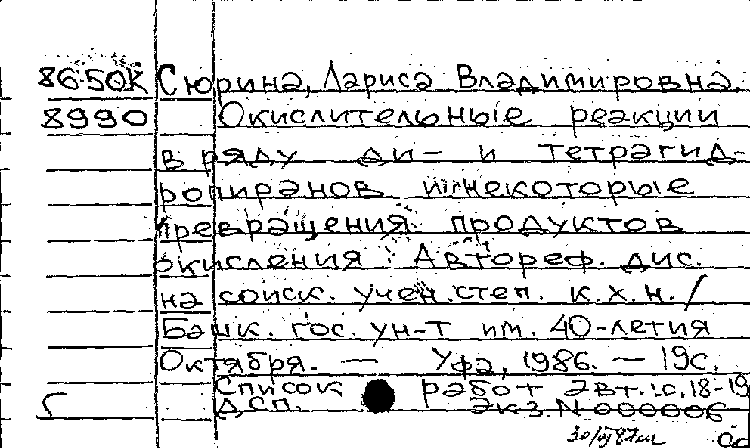 86-50К Сюрина, Лариса Владимировна.
8990 Окислительные реакции
в ряду ди- и тетрагид-
ропиранов и некоторые
превращения продуктов
окисления : Автореф. дис.
на соиск. учен. степ. к. х. н. /
Башк. гос. ун-т им. 40-летия
Октября. — Уфа, 1986. — 19с.
Список работ авт.: с. 18-19
ДСП. Экз. N 000006